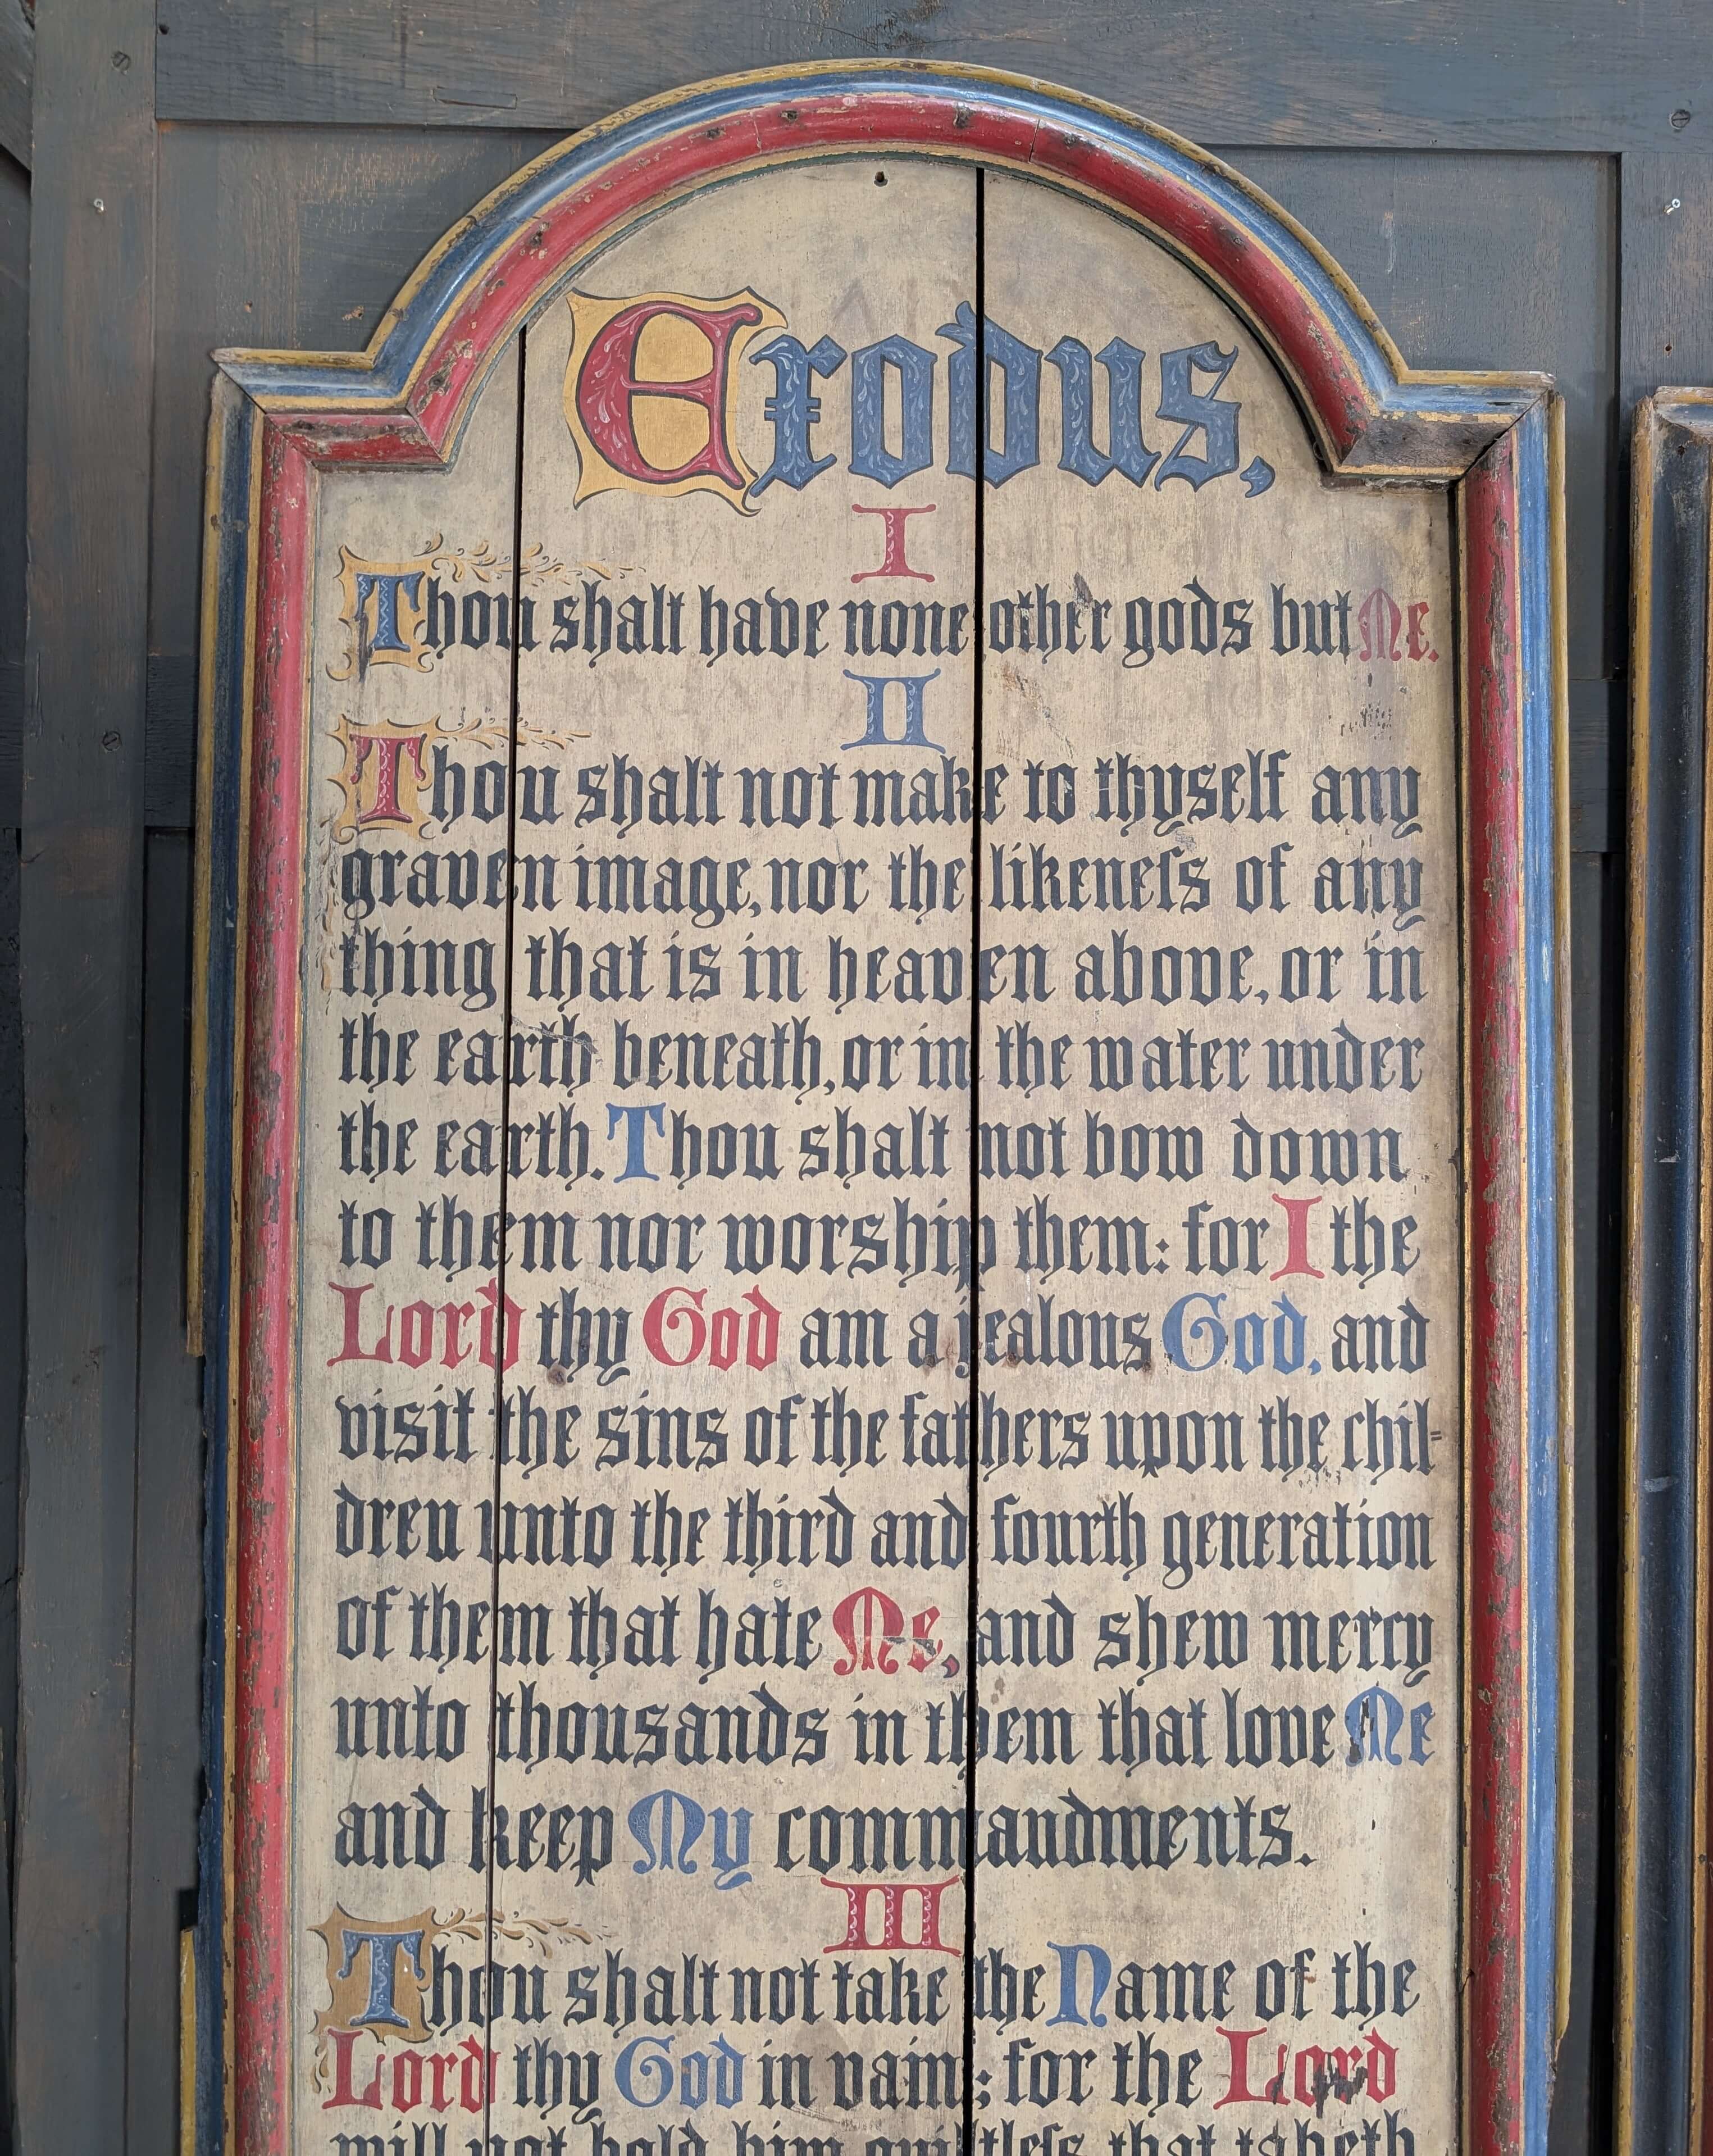 Exodus,
I
Thou shalt have none other gods but Me.
II
Thou shalt not make to thyself any
graven image, nor the likeneſs of any
thing that is in heaven above, or in
the earth beneath, or in the water under
the earth. Thou shalt not bow down
to them nor worship them: for I the
Lord thy God am a jealous God, and
visit the sins of the fathers upon the chil=
dren unto the third and fourth generation
of them that hate Me, and shew mercy
unto thousands in them that love Me
and keep My commandments.
III
Thou shalt not take the Name of the
Lord thy God in vain; for the Lord
will not hold him guiltleſs that taketh